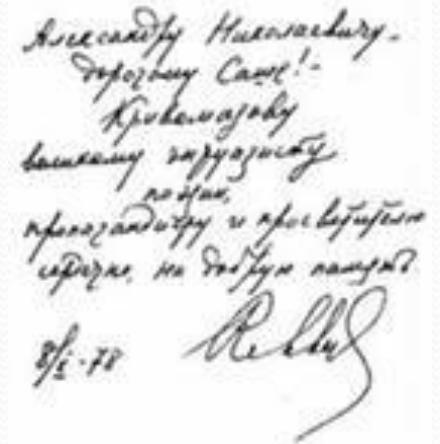 Александру Николаевичу -
дорогому Саше! -
Кривомазову
великому энтузиасту
поэзии,
пропагандисту и просветителю
сердечно, на добрую память
8/I-78